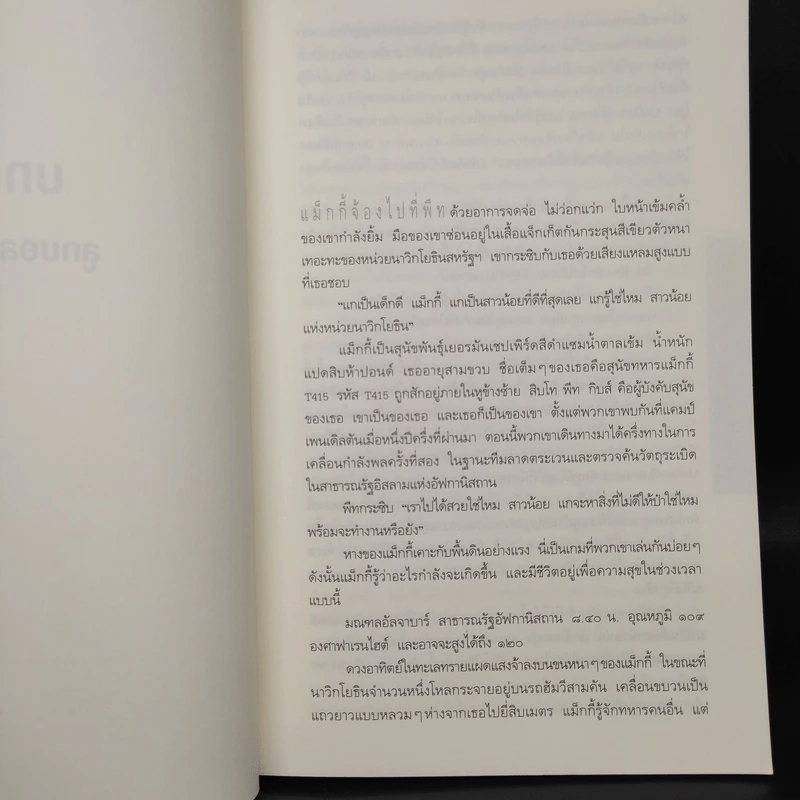 แม็กกี้จ้องไปที่พีท ด้วยอาการจดจ่อ ไม่ว่อกแว่ก ใบหน้าเข้มคล้ำ
ของเขากำลังยิ้ม มือของเขาซ่อนอยู่ในเสื้อแจ็กเก็ตกันกระสุนสีเขียวตัวหนา
เทอะทะของหน่วยนาวิกโยธินสหรัฐฯ เขากระซิบกับเธอด้วยเสียงแหลมสูงแบบ
ที่เธอชอบ
“แกเป็นเด็กดี แม็กกี้ แกเป็นสาวน้อยที่ดีที่สุดเลย แกรู้ใช่ไหม สาวน้อย
แห่งหน่วยนาวิกโยธิน”
แม็กกี้เป็นสุนัขพันธุ์เยอรมันเชปเพิร์ดสีดำแซมน้ำตาลเข้ม น้ำหนัก
แปดสิบห้าปอนด์ เธออายุสามขวบ ชื่อเต็มๆ ของเธอคือสุนัขทหารแม็กกี้
T415 รหัส T415 ถูกสักอยู่ภายในหูข้างซ้าย สิบโท พีท กิบส์ คือผู้บังคับสุนัข
ของเธอ เขาเป็นของเธอ และเธอก็เป็นของเขา ตั้งแต่พวกเขาพบกันที่แคมป์
เพนเดิลตันเมื่อหนึ่งปีครึ่งที่ผ่านมา ตอนนี้พวกเขาเดินทางมาได้ครึ่งทางในการ
เคลื่อนกำลังพลครั้งที่สอง ในฐานะทีมลาดตระเวนและตรวจค้นวัตถุระเบิด
ในสาธารณรัฐอิสลามแห่งอัฟกานิสถาน
พีทกระซิบ “เราไปได้สวยใช่ไหม สาวน้อย แกจะหาสิ่งที่ไม่ดีให้ป๋าใช่ไหม
พร้อมจะทำงานหรือยัง”
หางของแม็กกี้เคาะกับพื้นดินอย่างแรง นี่เป็นเกมที่พวกเขาเล่นกันบ่อยๆ
ดังนั้นแม็กกี้รู้ว่าอะไรกำลังจะเกิดขึ้น และมีชีวิตอยู่เพื่อความสุขในช่วงเวลา
แบบนี้
มณฑลอัลจาบาร์ สาธารณรัฐอัฟกานิสถาน ๘.๔๐ น. อุณหภูมิ ๑๐๙
องศาฟาเรนไฮต์ และอาจจะสูงได้ถึง ๑๒๐
ดวงอาทิตย์ในทะเลทรายแผดแสงจ้าลงบนขนหนาๆ ของแม็กกี้ ในขณะที่
นาวิกโยธินจำนวนหนึ่งโหลกระจายอยู่บนรถฮัมวีสามคัน เคลื่อนขบวนเป็น
แถวยาวแบบหลวมๆ ห่างจากเธอไปยี่สิบเมตร แม็กกี้รู้จักทหารคนอื่น แต่